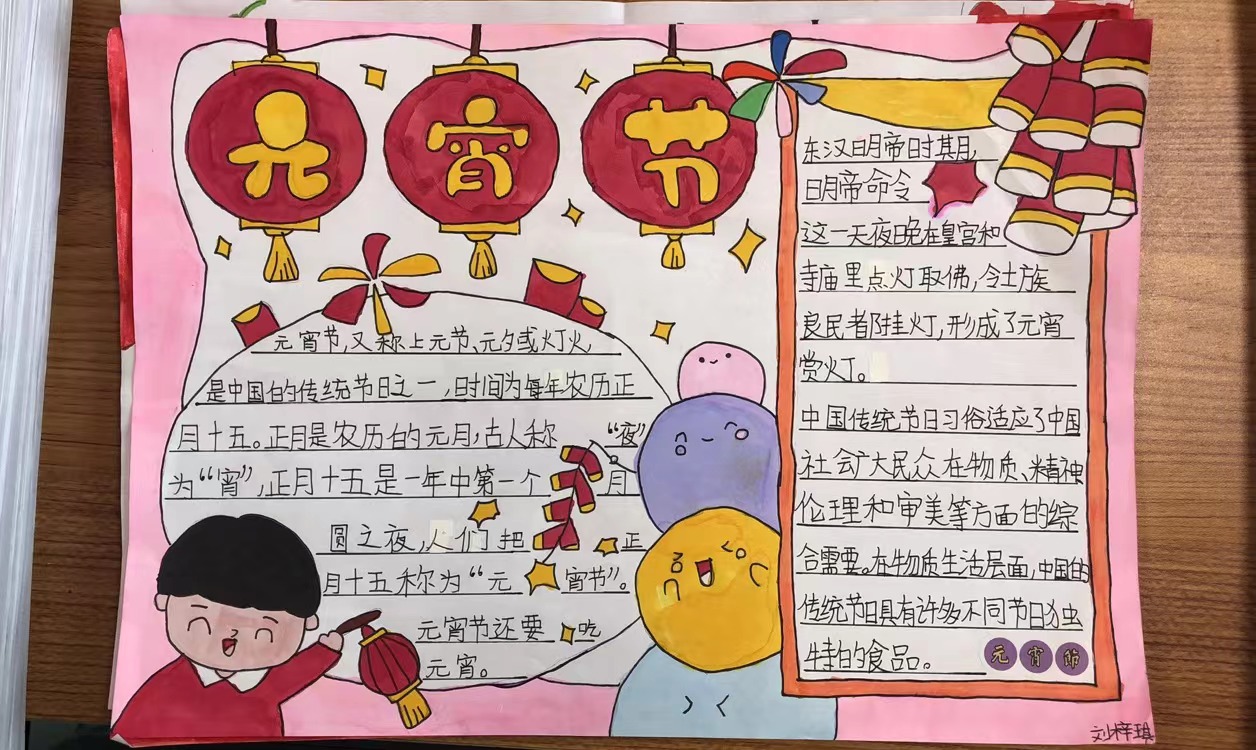 元宵节
元宵节,又称上元节、元夕或灯火
是中国的传统节日之一,时间为每年农历正
月十五。正月是农历的元月,古人称“夜”
为“宵”,正月十五是一年中第一个月
圆之夜,人们把正
月十五称为“元宵节”。
元宵节还要吃
元宵。
东汉明帝时其月,
明帝命令
这一天夜晚在皇宫和
寺庙里点灯取佛,令士族
良民都挂灯,形成了元宵
赏灯。
中国传统节日习俗适应了中国
社会广大民众在物质、精神
伦理和审美等方面的综
合需要。在物质生活层面,中国的
传统节日具有许多不同节日独
特的食品。
元宵節
刘梓琪